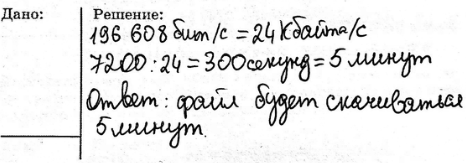 Дано:
Решение:
196 608 бит/с = 24 Кбайта/с
7200 : 24 = 300 секунд = 5 минут
Ответ: файл будет скачиваться
5 минут.